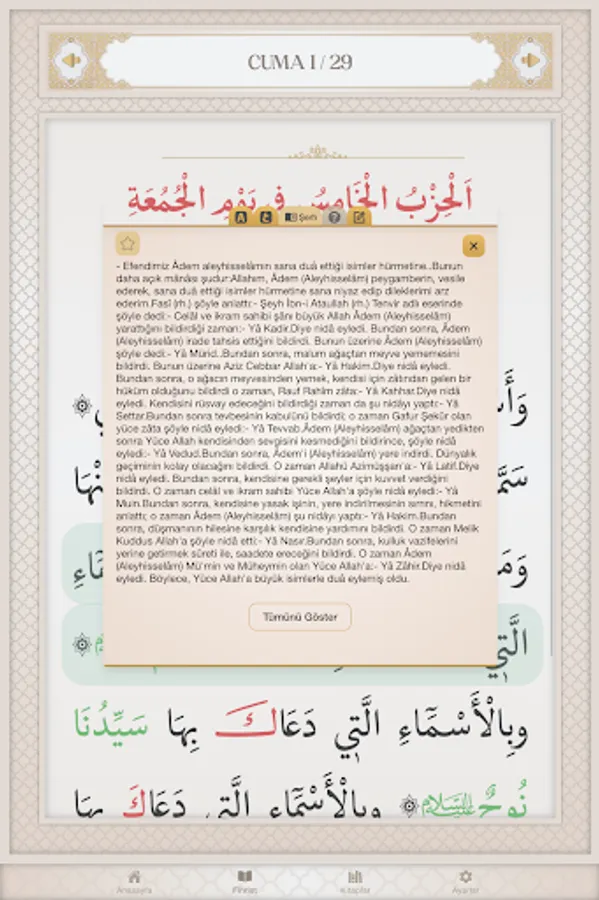 CUMA 1 / 29
اَلْحِزْبُ الْخَامِسُ فِي يَوْمِ الْجُمُعَةِ
Şerh
- Efendimiz Âdem aleyhisselâmın sana duâ ettiği isimler hürmetine..Bunun
daha açık mânâsı şudur:Allahım, Âdem (Aleyhisselâm) peygamberin, vesile
ederek, sana duâ ettiği isimler hürmetine sana niyaz edip dileklerimi arz
ederim.Fasî (rh.) şöyle anlattı:- Şeyh İbn-i Ataullah (rh.) Tenvir adlı eserinde
şöyle dedi:- Celâl ve ikram sahibi şânı büyük Allah Âdem (Aleyhisselâm)
yarattığını bildirdiği zaman:- Yâ Kadir.Diye nidâ eyledi. Bundan sonra, Âdem
(Aleyhisselâm) irade tahsis ettiğini bildirdi. Bunun üzerine Âdem (Aleyhisselâm)
şöyle dedi:- Yâ Mürid..Bundan sonra, malum ağaçtan meyve yememesini
bildirdi. Bunun üzerine Aziz Cebbar Allah'a:- Yâ Hakim.Diye nidâ eyledi.
Bundan sonra, o ağacın meyvesinden yemek, kendisi için zâtından gelen bir
hüküm olduğunu bildirdi o zaman, Rauf Rahîm zâta:- Yâ Kahhar.Diye nidâ
eyledi. Kendisini rüsvay edeceğini bildirdiği zaman da şu nidâyı yaptı:- Yâ
Settar.Bundan sonra tevbesinin kabulünü bildirdi; o zaman Gafur Şekûr olan
yüce zâta şöyle nidâ eyledi:- Yâ Tevvab.Âdem (Aleyhisselâm) ağaçtan yedikten
sonra Yüce Allah kendisinden sevgisini kesmediğini bildirince, şöyle nidâ
eyledi:- Yâ Vedud.Bundan sonra, Âdem'i (Aleyhisselâm) yere indirdi. Dünyalık
geçiminin kolay olacağını bildirdi. O zaman Allahü Azimüşşan'a:- Yâ Latif.Diye
nidâ eyledi. Bundan sonra, kendisine gerekli şeyler için kuvvet verdiğini
bildirdi. O zaman celâl ve ikram sahibi Yüce Allah'a şöyle nidâ eyledi:- Yâ
Muin.Bundan sonra, kendisine yasak işinin, yere indirilmesinin sırrını, hikmetini
anlattı; o zaman Âdem (Aleyhisselâm) şu nidâyı yaptı:- Yâ Hakim.Bundan
sonra, düşmanının hilesine karşılık kendisine yardımını bildirdi. O zaman Melik
Kuddus Allah'a şöyle nidâ etti:- Yâ Nasır.Bundan sonra, kulluk vazifelerini
yerine getirmek sûreti ile, saadete ereceğini bildirdi. O zaman Âdem
(Aleyhisselâm) Mü'min ve Müheymin olan Yüce Allah'a:- Yâ Zâhir.Diye nidâ
eyledi. Böylece, Yüce Allah'a büyük isimlerle duâ eylemiş oldu.
Tümünü Göster
الَّتِي
وَبِالْأَسْمَاءِ الَّتِي دَعَاكَ بِهَا سَيِّدُنَا
نُوحٌ عَلَيْهِ السَّلَامُ وَبِالْأَسْمَاءِ الَّتِي دَعَاكَ بِهَا
Anasayfa Fihrist Kitaplar Ayarlar